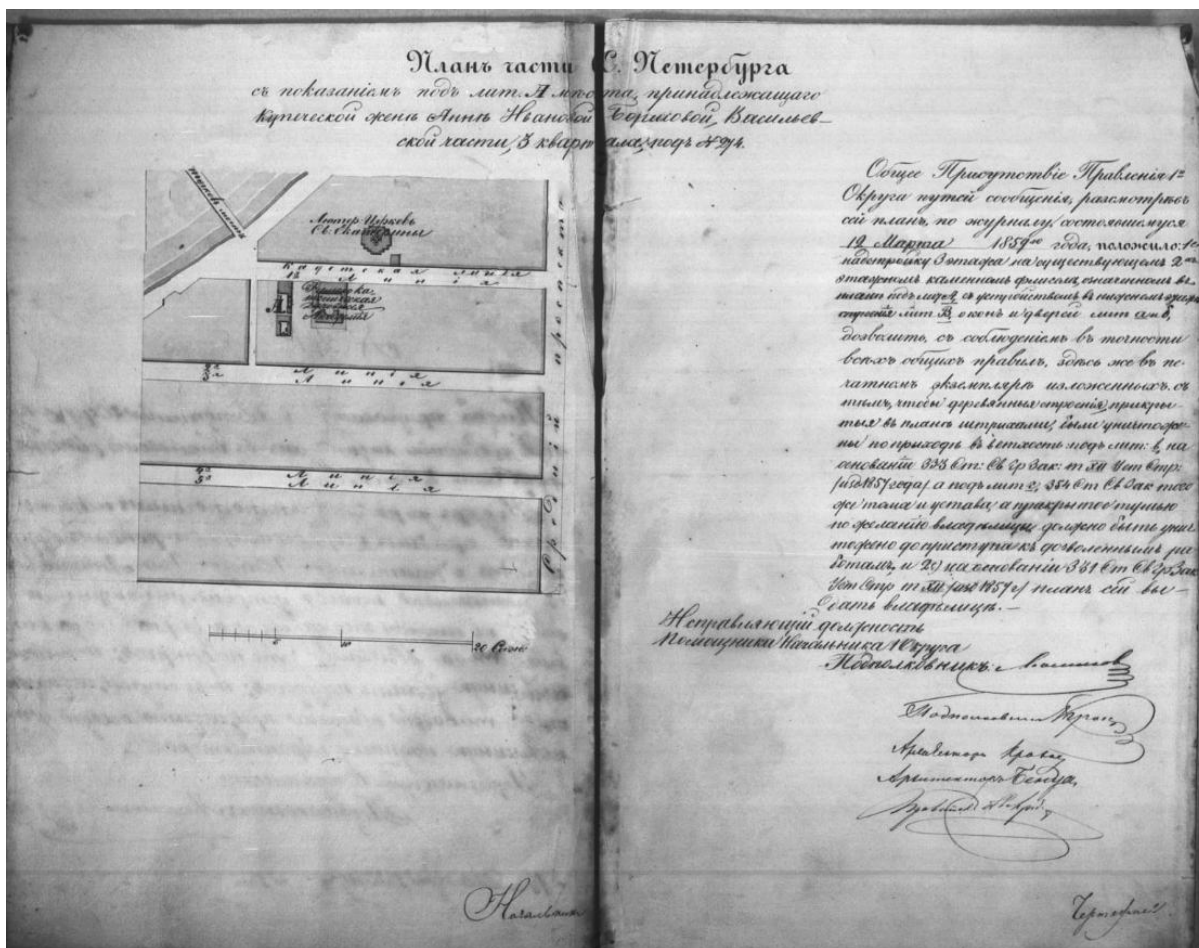 Планъ части С. Петербурга
съ показаніемъ подъ лит. А мѣста, принадлежащаго
Купеческой женѣ Аннѣ Ивановой Борисовой, Васильев-
ской части, 3 квартала, подъ №
Лютер. Церковь
Св. Екатерины
Кадетская линія
1я Линія
2я Линія
3я Линія
4я Линія
5я Линія
Средній проспектъ
Общее Присутствіе Правленія 1го
Округа путей сообщенія, разсмотрѣвъ
сей планъ, по журналу, состоявшемуся
12 Марта 1859го года, положило: 1е
надстройку 3 этажа на существующемъ 2хъ
этажномъ каменномъ флигелѣ, означенномъ на
планѣ подъ лит. съ устройствомъ въ нижнемъ
лит. В, оконъ и дверей лит. а и б,
дозволить, съ соблюденіемъ въ точности
всѣхъ общихъ правилъ, здѣсь же въ пе-
чатномъ экземплярѣ изложенныхъ, съ
тѣмъ, чтобы деревянныя строенія, прикры-
тыя въ планѣ штрихами, были уничтоже-
ны по приходѣ въ ветхость подъ лит: в, на
основаніи 333 Ст: Св. Гр. Зак: т. XII Уст. Стр:
/изд. 1857 года/, а подъ лит. г, 354 Ст. Св. Зак. того
же тома и устава; а прикрытое тушью
по желанію владѣлицы должно быть унич
тожено до приступа къ дозволеннымъ ра
ботамъ, и 2е) на основаніи 331 Ст. Св. Гр. Зак.
Уст. Стр. т. XII /изд. 1857 г/ планъ сей вы-
дать владѣлицѣ. —
Исправляющій должность
Помощника Начальника 1 Округа
Подполковникъ
Подполковникъ
Архитекторъ
Архитекторъ Бенуа
20 Саж.
Начальникъ
Чертежной